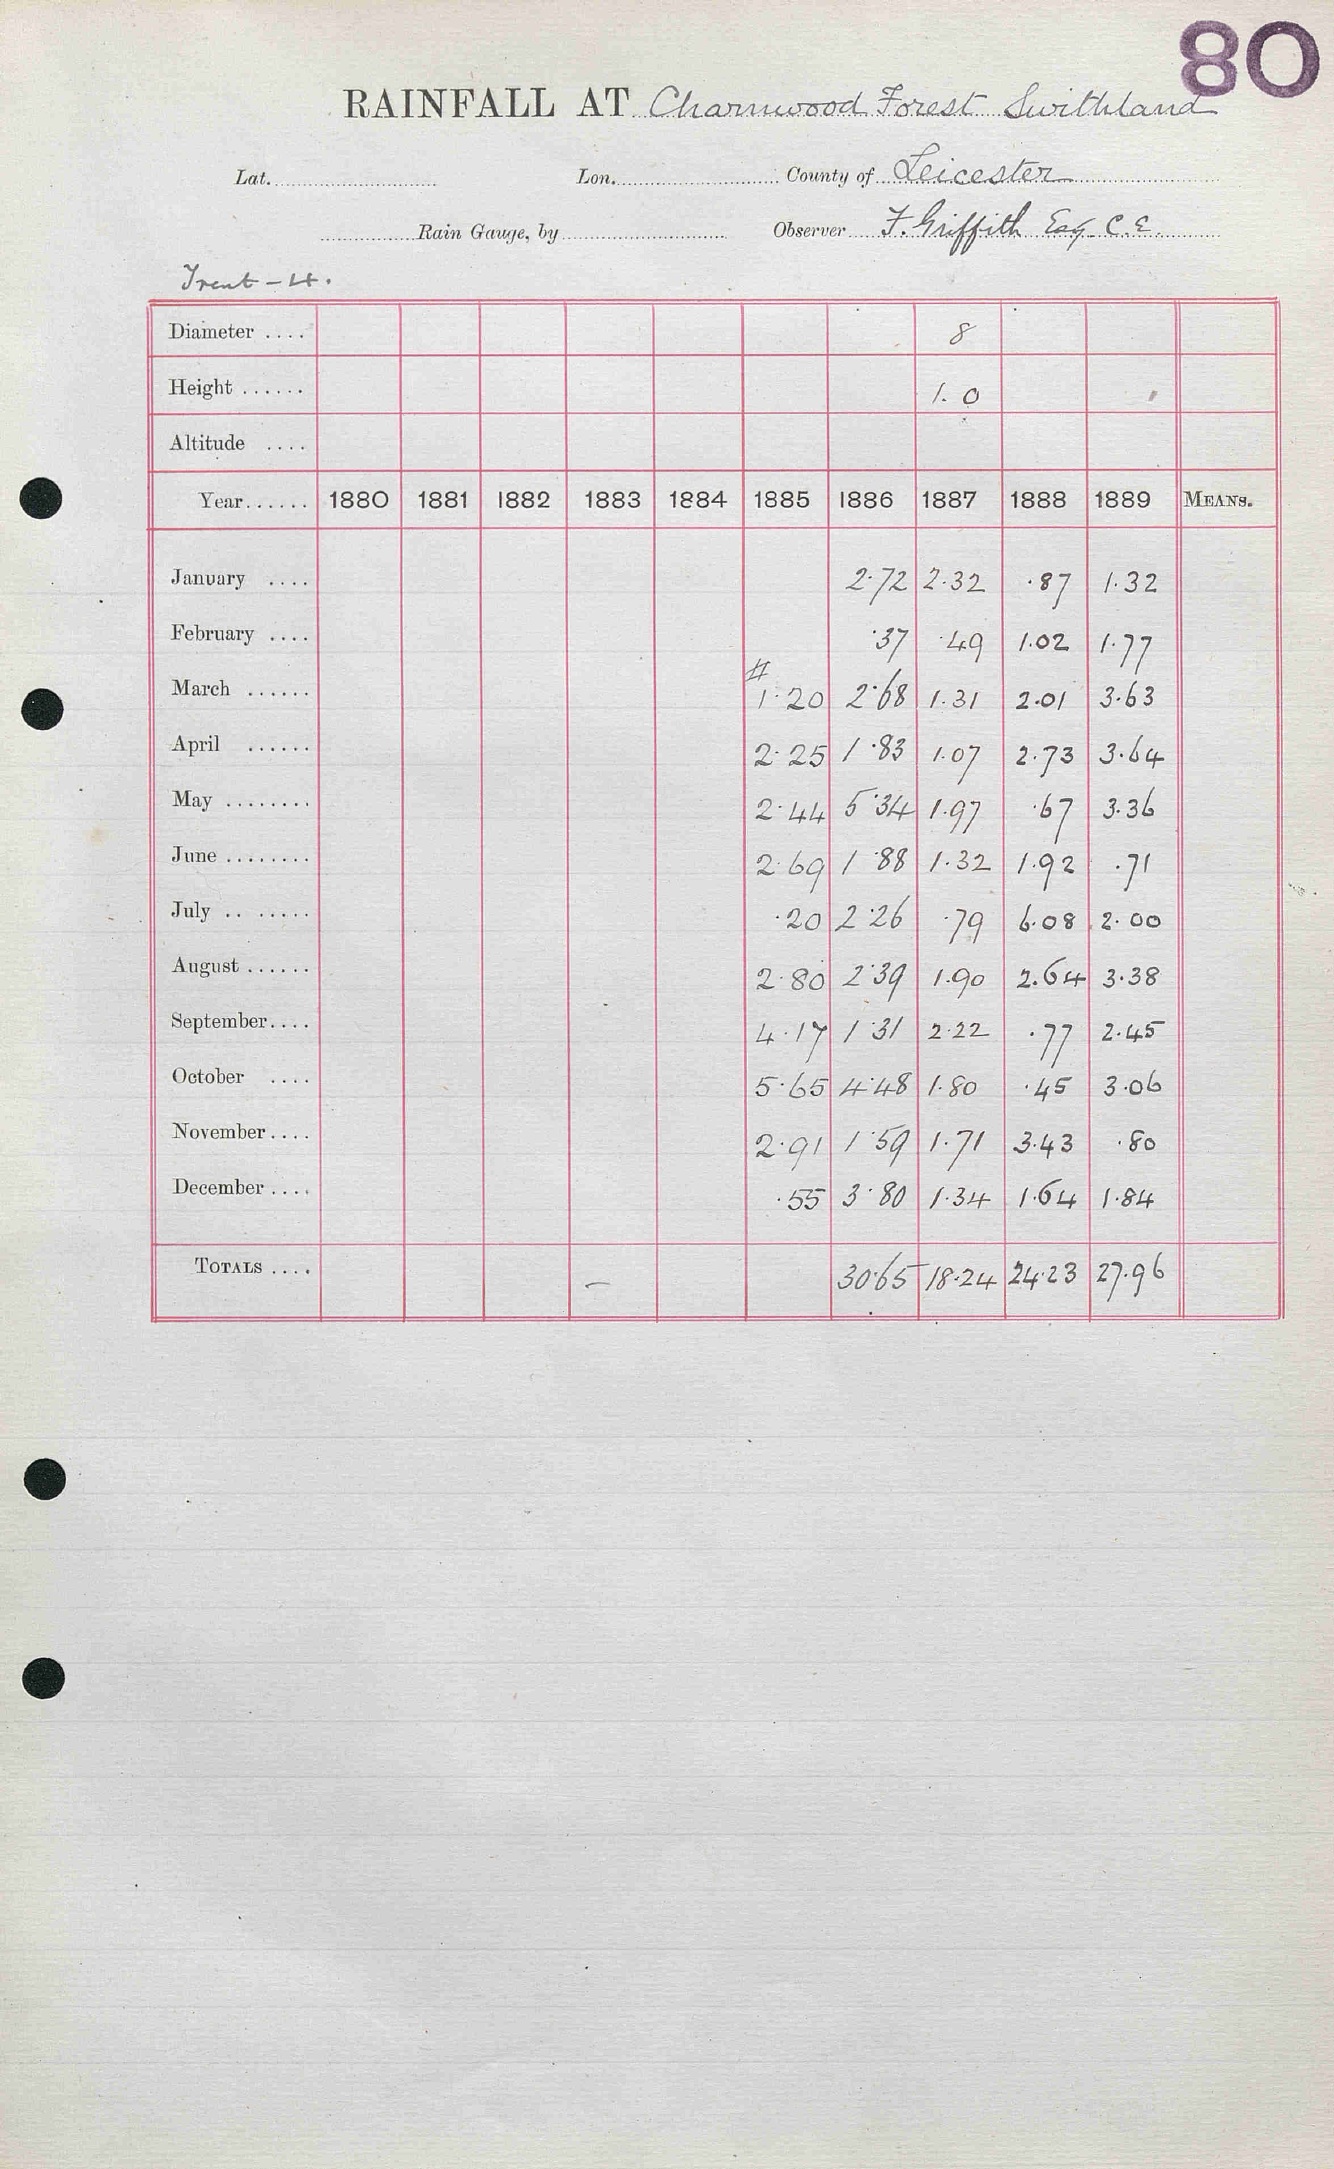 80
RAINFALL AT Charnwood Forest Swithland
Lat. Lon. County of Leicester
Rain Gauge, by Observer F. Griffith Esq. C.E.
Trent - 4.
Diameter .... 8
Height ...... 1. 0
Altitude ....
Year...... 1880 1881 1882 1883 1884 1885 1886 1887 1888 1889 MEANS.
January .... 2.72 2.32 .87 1.32
February .... .37 .49 1.02 1.77
#
March ...... 1.20 2.68 1.31 2.01 3.63
April ...... 2.25 1.83 1.07 2.73 3.64
May ........ 2.44 5.34 1.97 .67 3.36
June ........ 2.69 1.88 1.32 1.92 .71
July .. ...... .20 2.26 .79 6.08 2.00
August ...... 2.80 2.39 1.90 2.64 3.38
September.... 4.17 1.31 2.22 .77 2.45
October .... 5.65 4.48 1.80 .45 3.06
November.... 2.91 1.59 1.71 3.43 .80
December .... .55 3.80 1.34 1.64 1.84
TOTALS .... 30.65 18.24 24.23 27.96